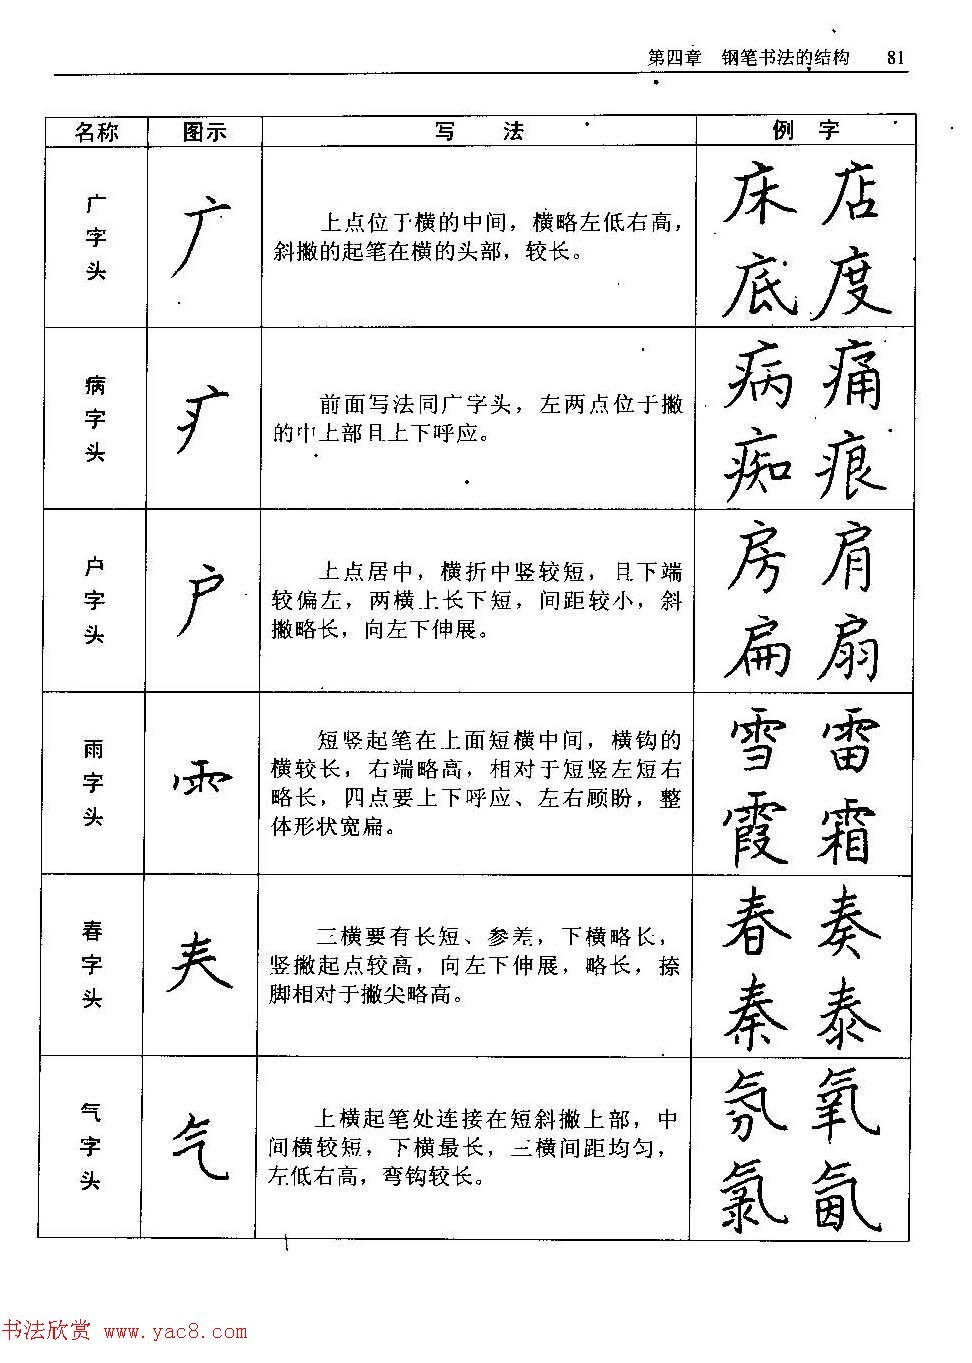 第四章 钢笔书法的结构 81
名称 图示 写 法 例 字
广字头 广 上点位于横的中间，横略左低右高，
斜撇的起笔在横的头部，较长。
床 店
底 度
病字头 疒 前面写法同广字头，左两点位于撇
的中上部且上下呼应。
病 痛
痴 痕
户字头 户 上点居中，横折中竖较短，且下端
较偏左，两横上长下短，间距较小，斜
撇略长，向左下伸展。
房 肩
扁 扇
雨字头 ⻗ 短竖起笔在上面短横中间，横钩的
横较长，右端略高，相对于短竖左短右
略长，四点要上下呼应、左右顾盼，整
体形状宽扁。
雪 雷
霞 霜
春字头 𡗗 三横要有长短、参差，下横略长，
竖撇起点较高，向左下伸展，略长，捺
脚相对于撇尖略高。
春 奏
秦 泰
气字头 气 上横起笔处连接在短斜撇上部，中
间横较短，下横最长，三横间距均匀，
左低右高，弯钩较长。
氛 氧
氯 氤
书法欣赏 www.yac8.com